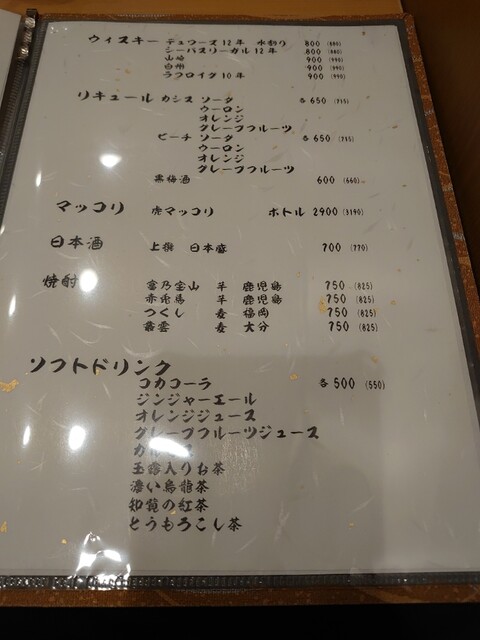 ウィスキー デュワーズ12年 水割り 800 (880)
シーバスリーガル 12年 800 (880)
山崎 900 (990)
白州 900 (990)
ラフロイグ 10年 900 (990)
リキュール カシス ソーダ 各650 (715)
ウーロン
オレンジ
グレープフルーツ
ピーチ ソーダ 各650 (715)
ウーロン
オレンジ
グレープフルーツ
黒梅酒 600 (660)
マッコリ 虎マッコリ ボトル 2900 (3190)
日本酒 上撰 日本盛 700 (770)
焼酎 富乃宝山 芋 鹿児島 750 (825)
赤兎馬 芋 鹿児島 750 (825)
つくし 麦 福岡 750 (825)
麦 大分 750 (825)
ソフトドリンク
コカコーラ 各500 (550)
ジンジャーエール
オレンジジュース
グレープフルーツジュース
カルピス
玉露入りお茶
濃い烏龍茶
知覧の紅茶
とうもろこし茶